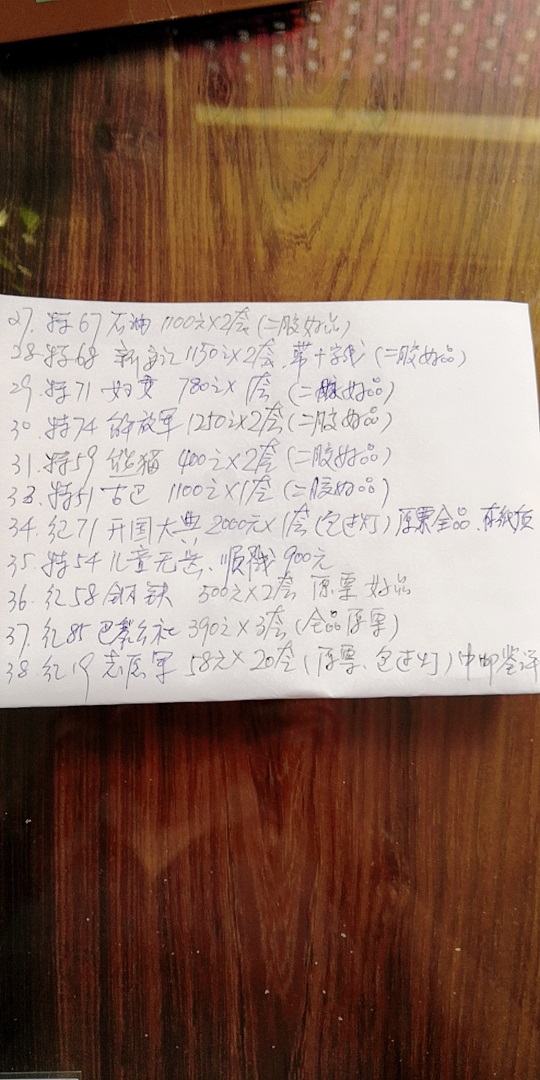 27. 特67 石油 1100元×2套(二胶好品)
28. 特68 新安江 1150元×2套 带十字线 (二胶好品)
29. 特71 妇女 780元×1套 (二胶好品)
30. 特74 解放军 1250元×2套(二胶好品)
31. 特59 熊猫 400元×2套(二胶好品)
33. 特51 古巴 1100元×1套(二胶好品)
34. 纪71 开国大典 2000元×1套(包过灯)原票全品.有纸
35. 特54 儿童无齿、顺戳 900元
36. 纪58 钢铁 500元×2套 原票 好品
37. 纪85 巴黎公社 390元×3套(全品原票)
38 纪19 志愿军 58元×20套(原票、包过灯)中邮鉴评